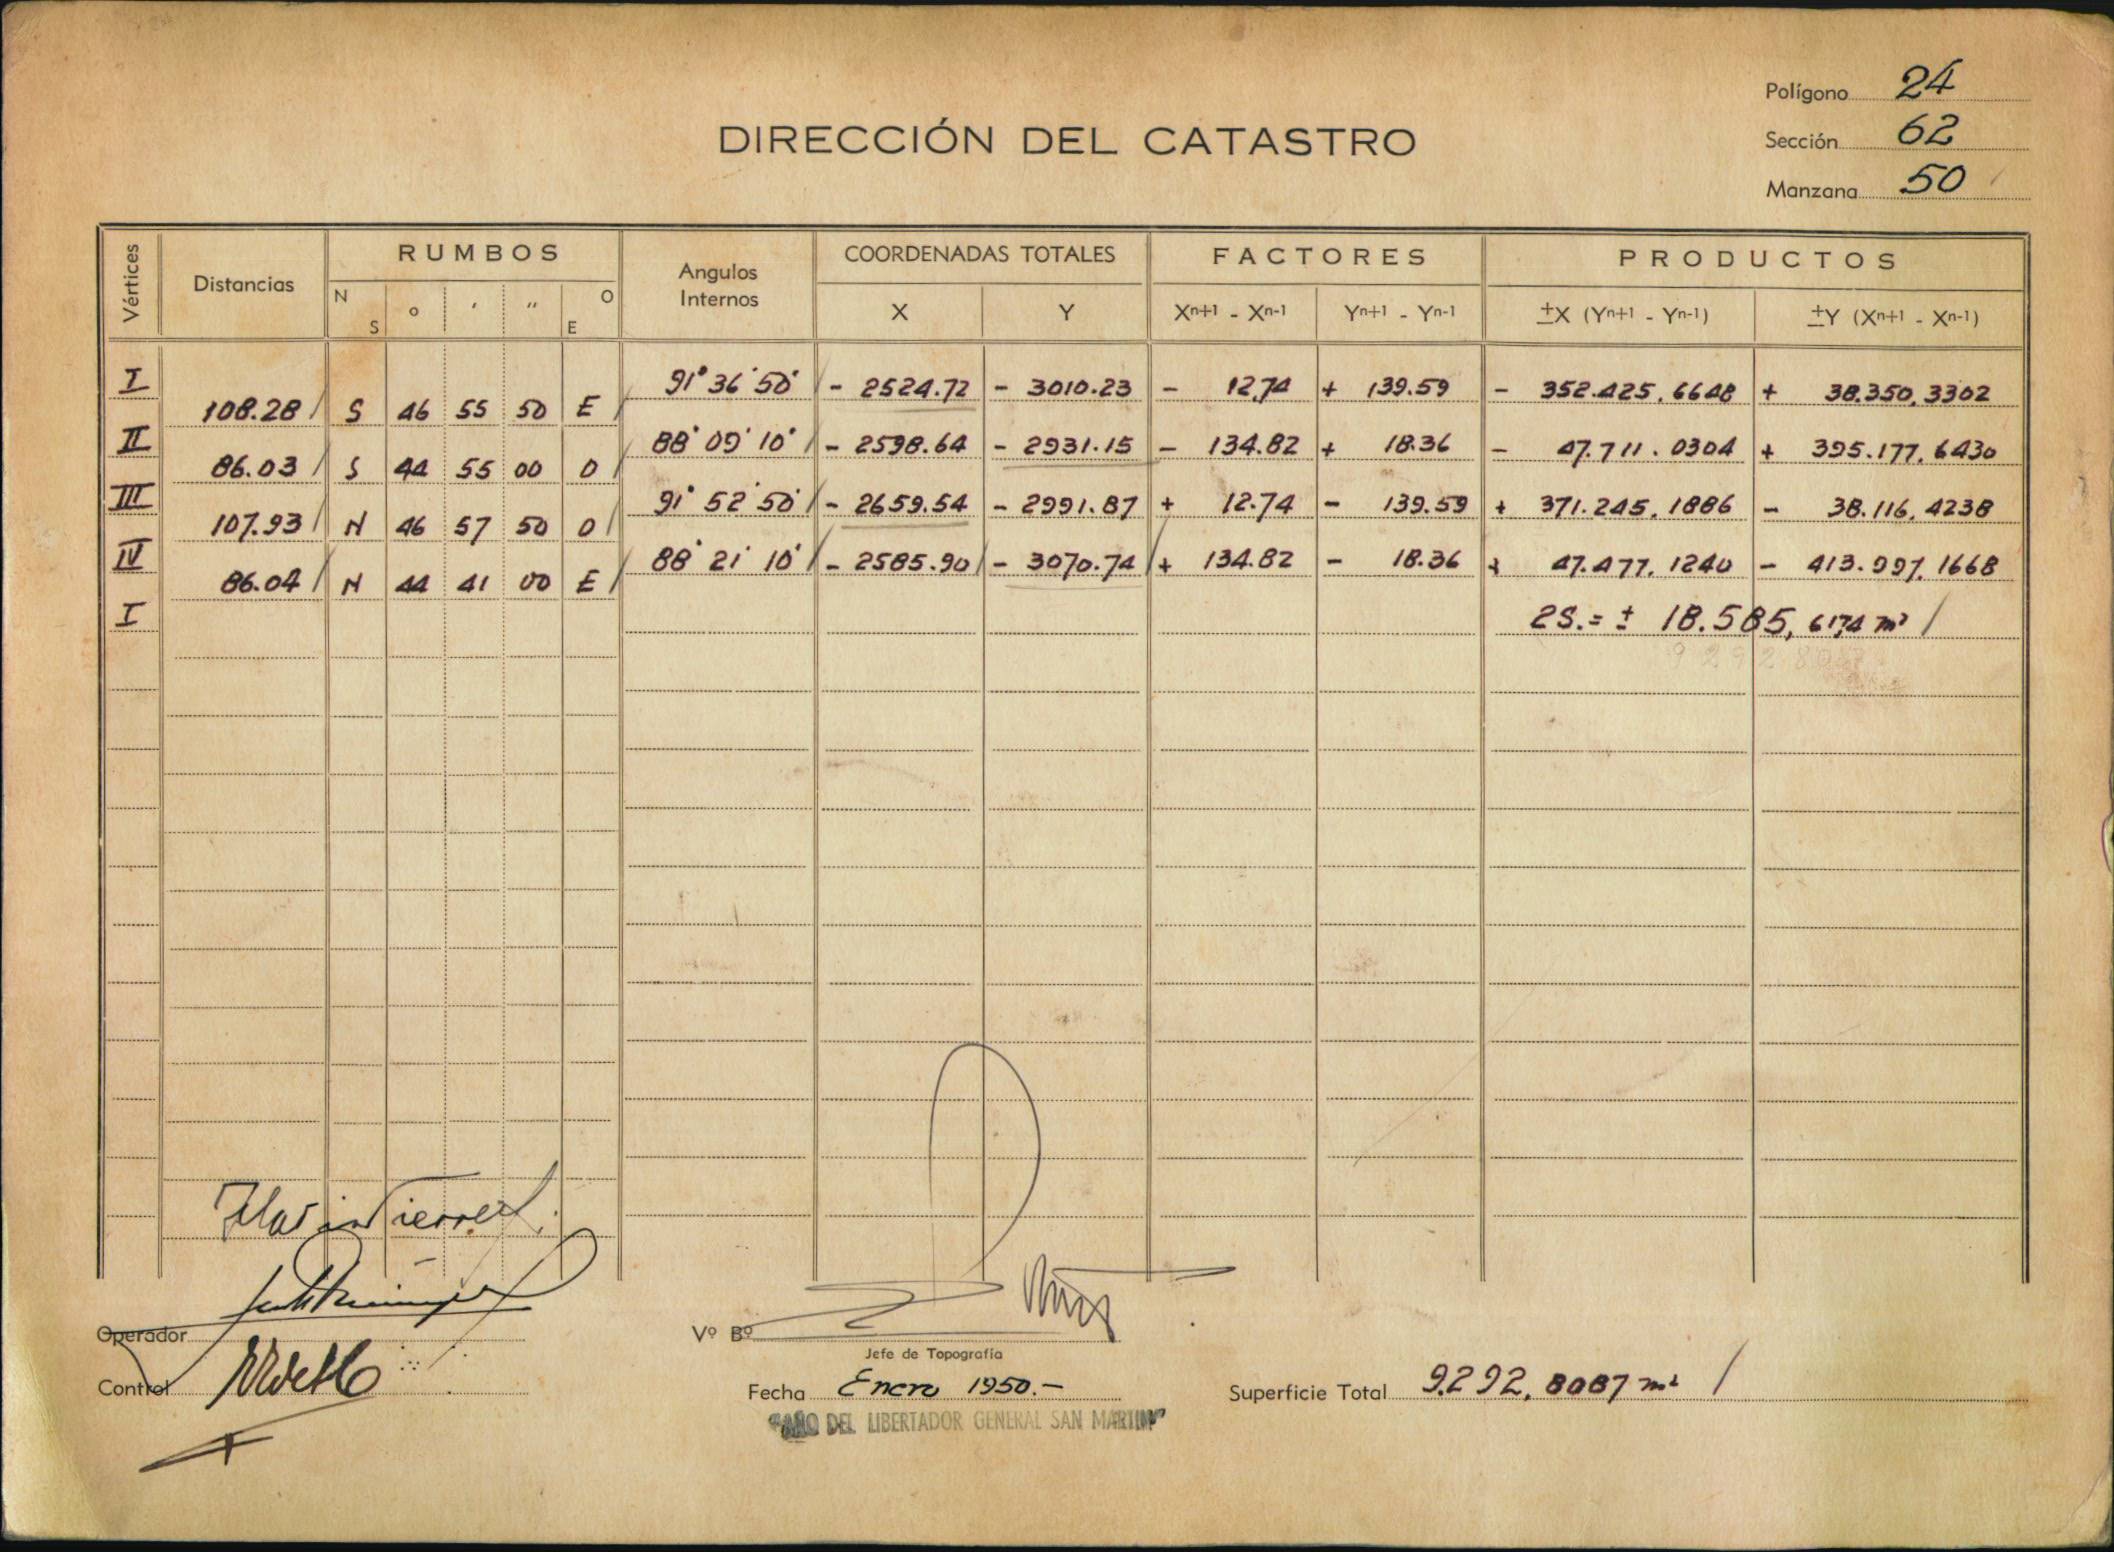 Polígono 24
DIRECCIÓN DEL CATASTRO
Sección 62
Manzana 50
Vértices Distancias RUMBOS Angulos Internos COORDENADAS TOTALES FACTORES PRODUCTOS
N S º ′ ″ O E X Y Xⁿ⁺¹ - Xⁿ⁻¹ Yⁿ⁺¹ - Yⁿ⁻¹ ±X (Yⁿ⁺¹ - Yⁿ⁻¹) ±Y (Xⁿ⁺¹ - Xⁿ⁻¹)
I 91° 36' 50" - 2524.72 - 3010.23 - 12,74 + 139.59 - 352.425,6648 + 38.350,3302
108.28 / S 46 55 50 E /
II 88° 09' 10" / - 2598.64 - 2931.15 - 134.82 + 18.36 - 47.711.0304 + 395.177,6430
86.03 / S 44 55 00 O /
III 91° 52' 50" / - 2659.54 - 2991.87 + 12.74 - 139.59 + 371.245,1886 - 38.116,4238
107.93 / N 46 57 50 O /
IV 88° 21' 10" / - 2585.90 / - 3070.74 / + 134.82 - 18.36 + 47.477,1240 - 413.997,1668
86.04 / N 44 41 00 E /
I 2S.= ± 18.585,6174 m² /
9292 80
Operador
Vº Bº
Jefe de Topografía
Control
Fecha Enero 1950.-
Superficie Total 9.292,8087 m² /
"AÑO DEL LIBERTADOR GENERAL SAN MARTIN"